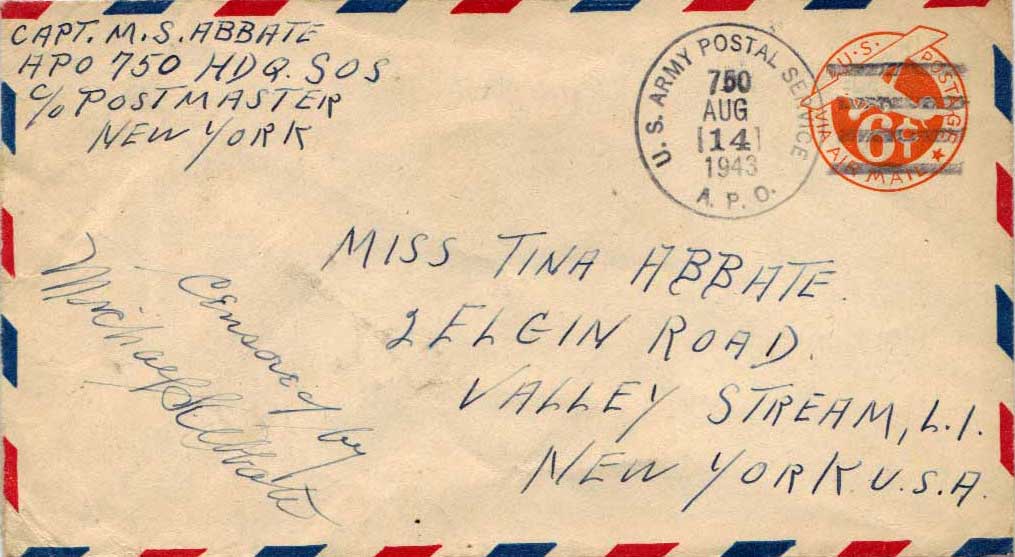 CAPT. M. S. ABBATE
APO 750 HDQ. SOS
c/o POSTMASTER
NEW YORK
U. S. ARMY POSTAL SERVICE
750
AUG
14
1943
A. P. O.
U.S. POSTAGE
6¢
VIA AIR MAIL
MISS TINA ABBATE.
2 ELGIN ROAD.
VALLEY STREAM, L.I.
NEW YORK U.S.A.
Censored by
Michael S. Abbate